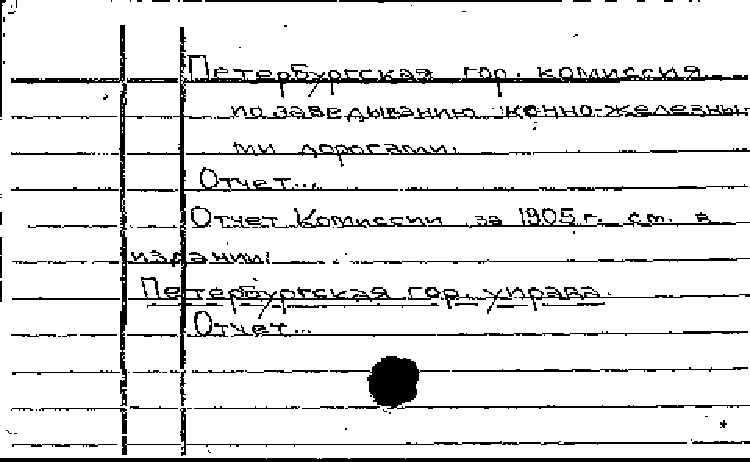 Петербургская гор. комиссия
по заведыванию конно-железны
ми дорогами.
Отчет...
Отчет Комиссии за 1905 г. см. в
издании:
Петербургская гор. управа.
Отчет...